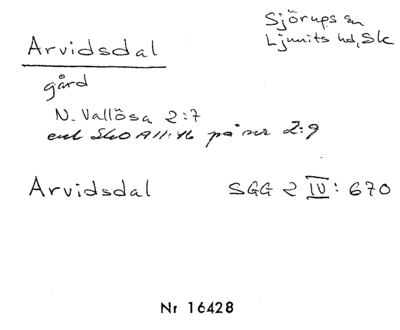 Arvidsdal
Sjörups sn
Ljunits hd, Sk
gård
N. Vallösa 2:7
enl SkO A11:16 på nr 2:9
Arvidsdal SGG 2 IV: 670
Nr 16428